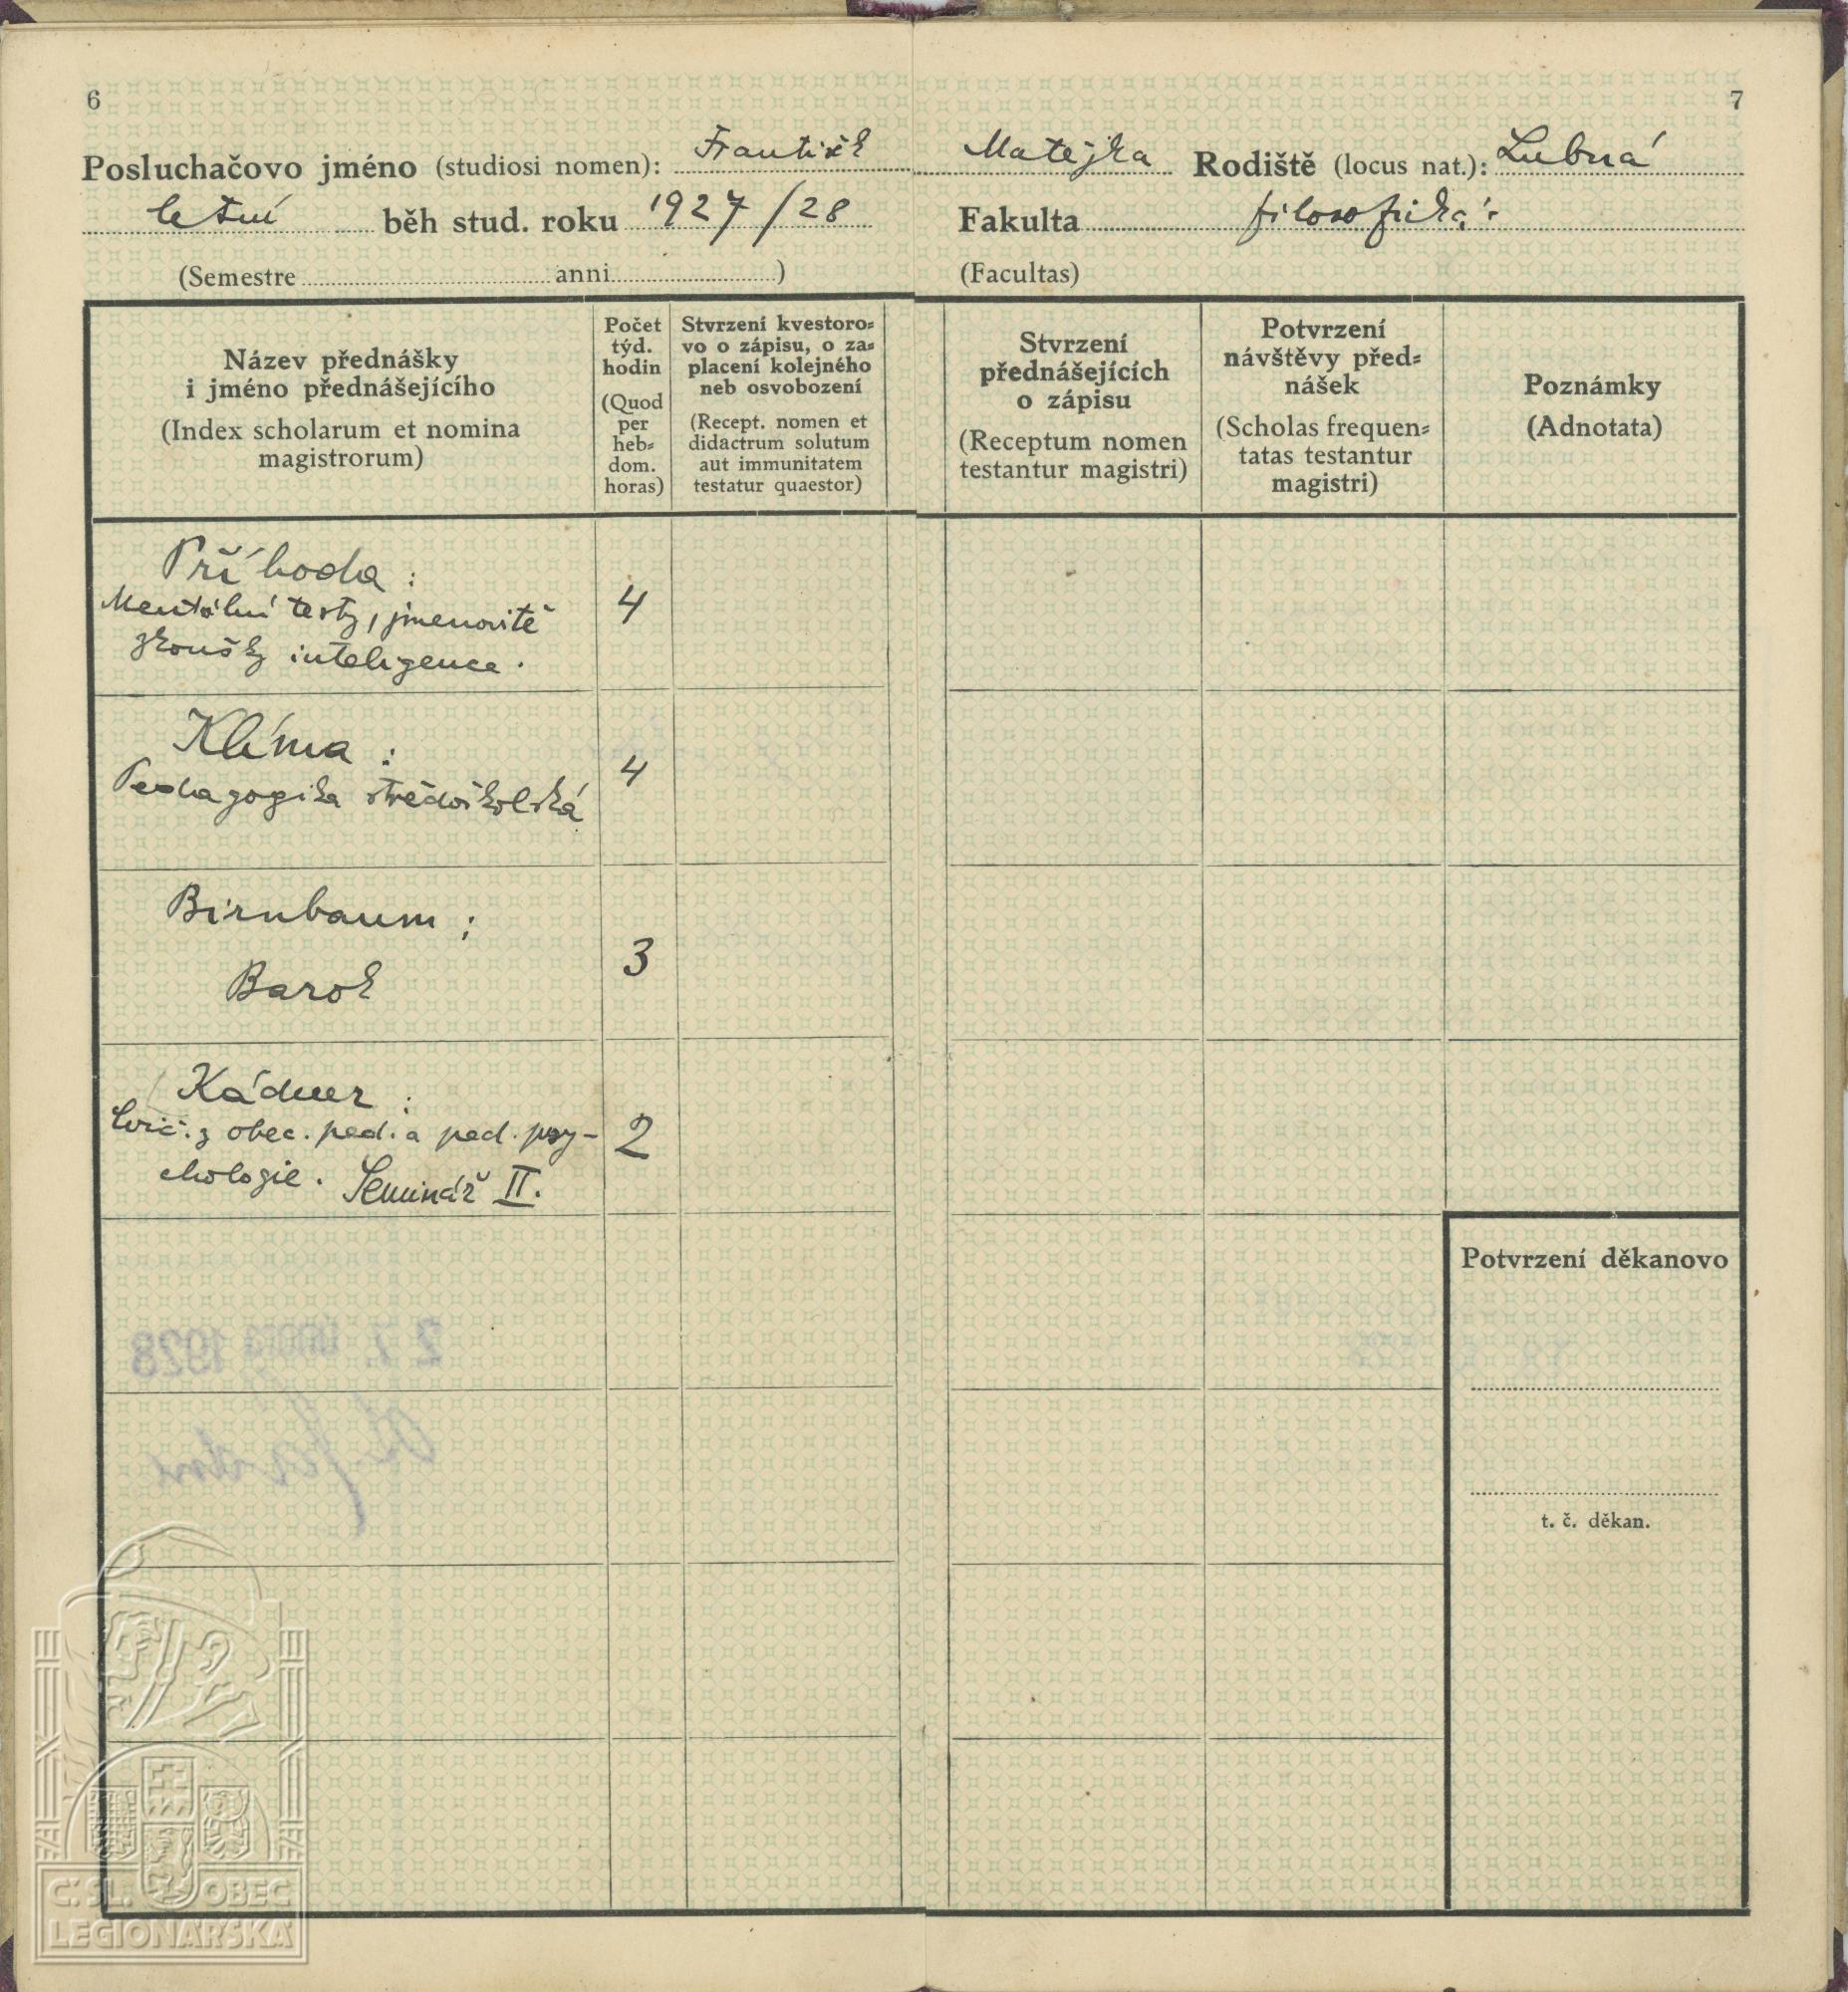 6
7
Posluchačovo jméno (studiosi nomen): František Matějka Rodiště (locus nat.): Lubná
letní běh stud. roku 1927/28 Fakulta filosofická
(Semestre anni ) (Facultas)
Název přednášky
i jméno přednášejícího
(Index scholarum et nomina
magistrorum)
Počet
týd.
hodin
(Quod
per
heb=
dom.
horas)
Stvrzení kvestoro=
vo o zápisu, o za=
placení kolejného
neb osvobození
(Recept. nomen et
didactrum solutum
aut immunitatem
testatur quaestor)
Stvrzení
přednášejících
o zápisu
(Receptum nomen
testantur magistri)
Potvrzení
návštěvy před=
nášek
(Scholas frequen=
tatas testantur
magistri)
Poznámky
(Adnotata)
Příhoda :
Mentální testy, jmenovitě
zkoušky inteligence.
4
Klíma :
Pedagogika středoškolská
4
Birnbaum :
Barok
3
Kádner :
Cvič. z obec. ped. a ped. psy-
chologie. Seminář II.
2
Potvrzení děkanovo
t. č. děkan.
27. února 1928
Č. SL. OBEC
LEGIONÁŘSKÁ